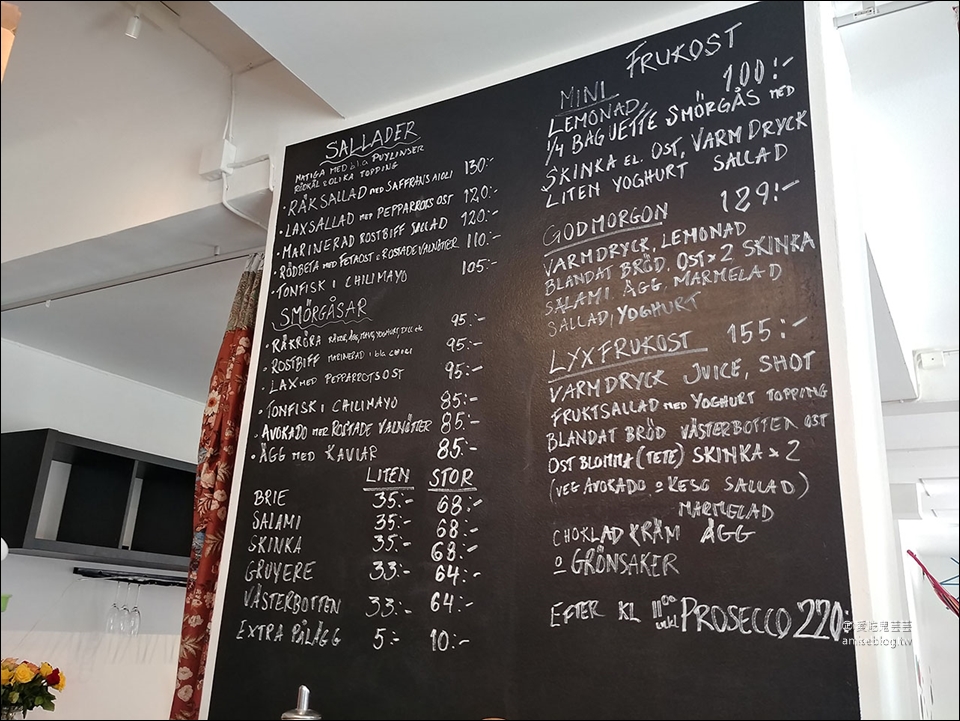 SALLADER
MATIGA MED bla PUYLINSER
RÖDKÅL & OLIKA TOPPING
• RÄKSALLAD MED SAFFRANS AIOLI 130:-
• LAXSALLAD MED PEPPARROTSOST 120:-
• MARINERAD ROSTBIFF SALLAD 120:-
• RÖDBETA MED FETAOST & ROSTADE VALNÖTTER 110:-
• TONFISK I CHILIMAYO 105:-
SMÖRGÅSAR
• RÄKRÖRA RÄKOR, ÄGG, MAYO, YOGHURT, DILL etc 95:-
• ROSTBIFF MARINERAD i bla 95:-
• LAX MED PEPPARROTSOST 95:-
• TONFISK I CHILIMAYO 85:-
• AVOKADO MED ROSTADE VALNÖTTER 85:-
• ÄGG MED KAVIAR 85:-
LITEN STOR
BRIE 35:- 68:-
SALAMI 35:- 68:-
SKINKA 35:- 68:-
GRUYERE 33:- 64:-
VÄSTERBOTTEN 33:- 64:-
EXTRA PÅLÄGG 5:- 10:-
FRUKOST
MINI 100:-
LEMONAD,
1/4 BAGUETTE SMÖRGÅS MED
SKINKA EL. OST, VARM DRYCK
LITEN YOGHURT SALLAD
GODMORGON 129:-
VARMDRYCK, LEMONAD
BLANDAT BRÖD, OST × 2 SKINKA
SALAMI ÄGG, MARMELAD
SALLAD, YOGHURT
LYXFRUKOST 155:-
VARMDRYCK JUICE, SHOT
FRUKTSALLAD MED YOGHURT TOPPING
BLANDAT BRÖD VÄSTERBOTTEN OST
OST BLOMMA (TETE) SKINKA × 2
(VEG AVOKADO o KESO SALLAD)
MARMELAD
CHOKLAD KRÄM ÄGG
o GRÖNSAKER
EFTER KL 11 00 PROSECCO 220:-
amiseblog.tw